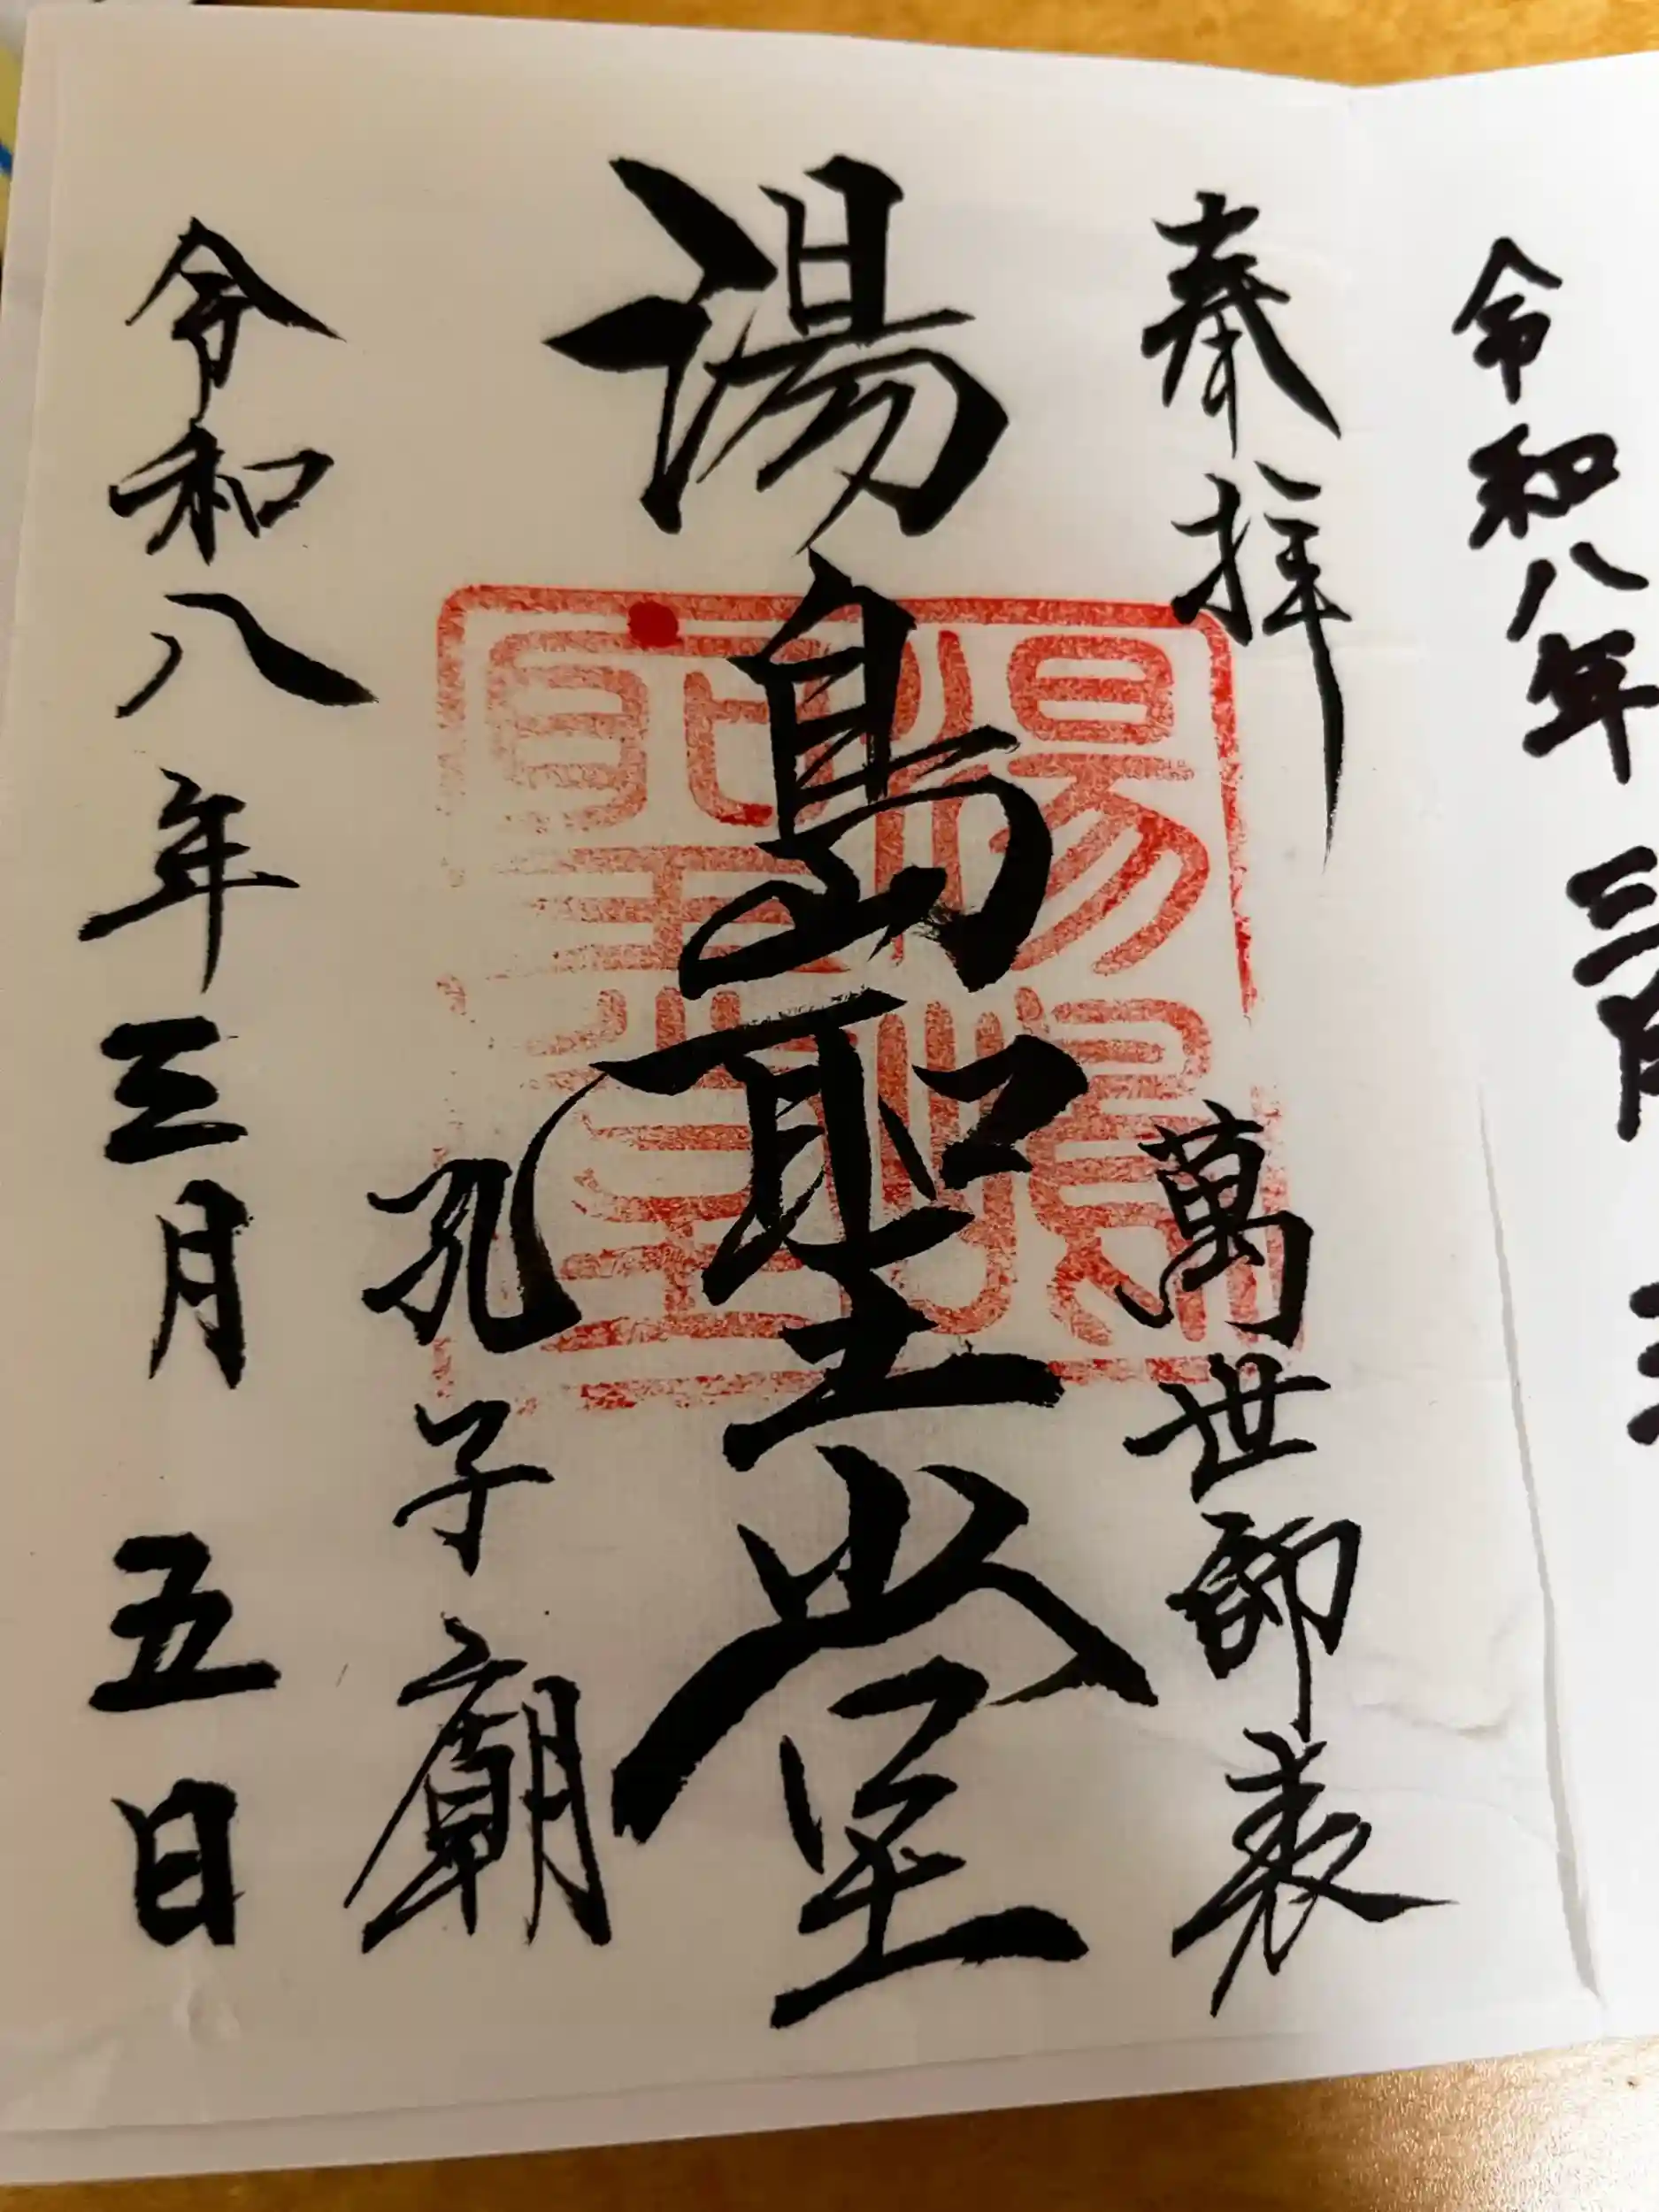 令和八年 三月
奉拝 萬世師表
湯島聖堂
孔子廟
令和八年三月 五日
湯島
聖堂